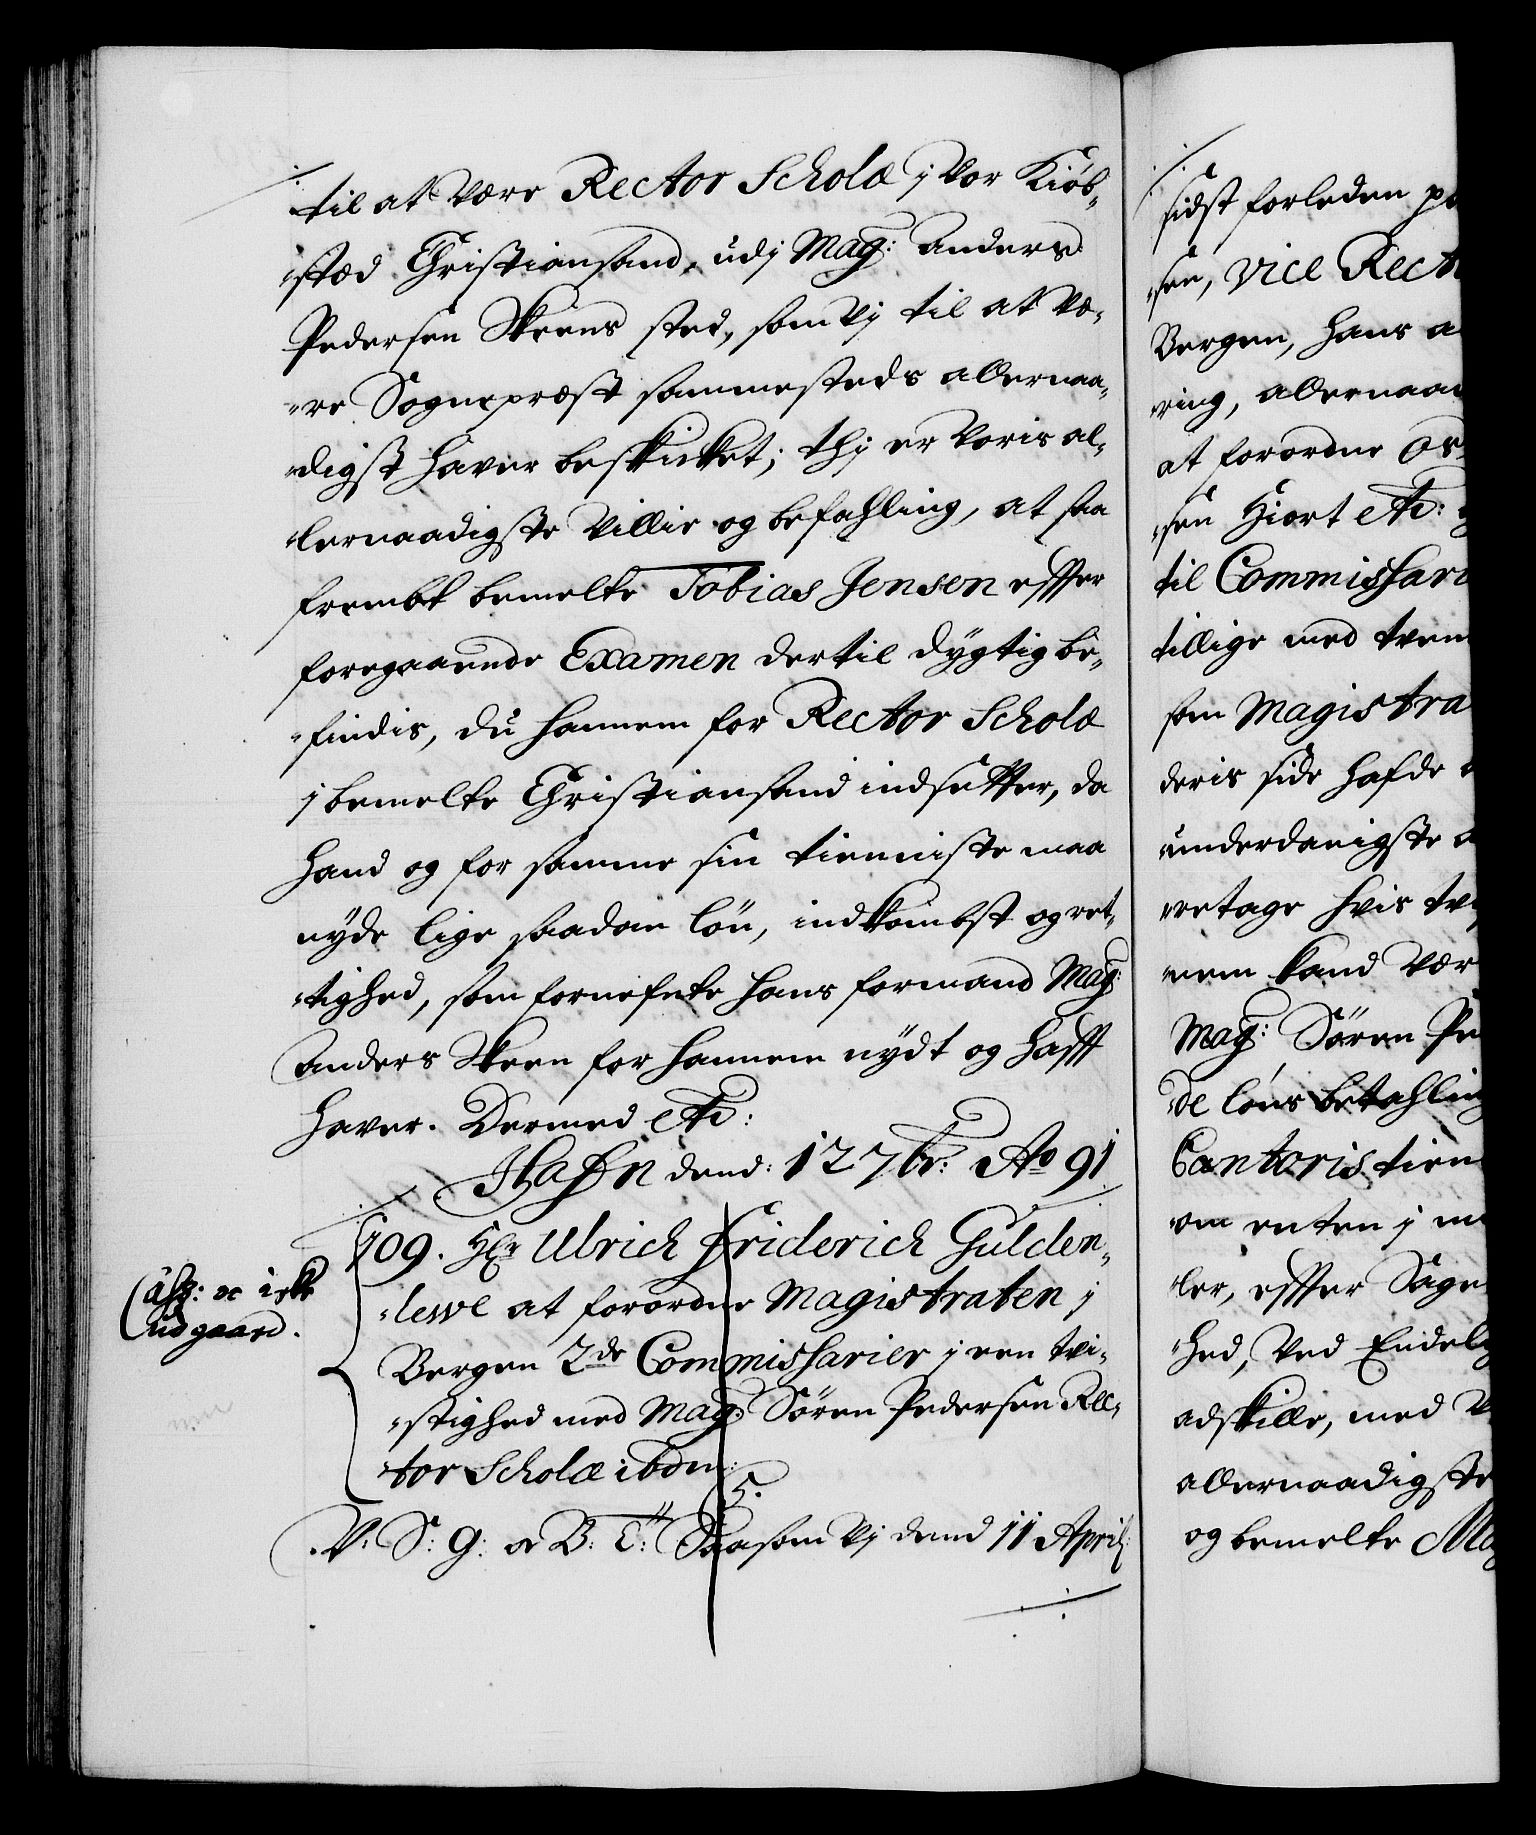 til at være Rector Scholæ j vor Kiøb-
-stæd Christiansand, udj Mag: Anders
Pedersen Skeens sted, som Vj til at væ-
-re Sognepræst sammesteds allernaa-
-digst haver beskikket; Thj er Voris al-
-lernaadigste Villie og befahling, at saa
frembt bemelte Tobias Jensen effter
foregaaende Examen dertil dygtig be-
-findis, du hannem for Rector Scholæ
j bemelte Christiansand indsetter, da
hand og for samme sin tienniste maa
nyde lige saadan løn, indkombst og ret-
-tighed, som fornefnte hans formand Mag:
Anders Skeen for hannem nydt og hafft
haver. Dermed etc:
Hafn dend: 12 7br: Ao 91
109. Hr Ulrich Friderich Gulden-
-lewe at forordne Magistraten j
Bergen 2de Commissarier j een tvi-
-stighed med Mag: Søren Pedersen Rec-
-tor Scholæ ibdm:
udgaaed.
C5.
V: S: G: B: T: Saasom Vj dend 11 April:
sidst forleden
-sen, Vice Rect
Bergen, hans
-ring, allernaa
at forordne
-sen Hiort etc:
til Commissari
tillige med tvem
som Magistra
deris side hafde
underdanigste
-retage hvis tv
-nem kand vær
Mag: Søren Pe
-de løns betahling
Cantoris tien
om enten j m
-ler, effter Sage
-hed, ved Endelig
adskille, med
allernaadigste
og bemelte Mag